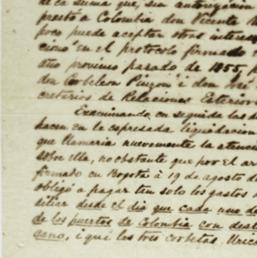 de la suma que, sin autorizacion
prestó a Colombia don Vicente
poco puede aceptar otros interes
cion en el protocolo formado
año proximo pasado de 1855, p
don Lubeleon Pinzon i don José
cretarios de Relaciones Exterior
Examinando en seguida las d
hacen en la espresada liquidacion
que llamaria nuevamente la atencion
sobre ella, no obstante que por el ar
formado en Bogotá á 19 de agosto d
obligó a pagar tan solo los gastos
sitiar desde el dia que cada una d
de los puertos de Colombia con dest
cano, i que las tres corbetas, Urica